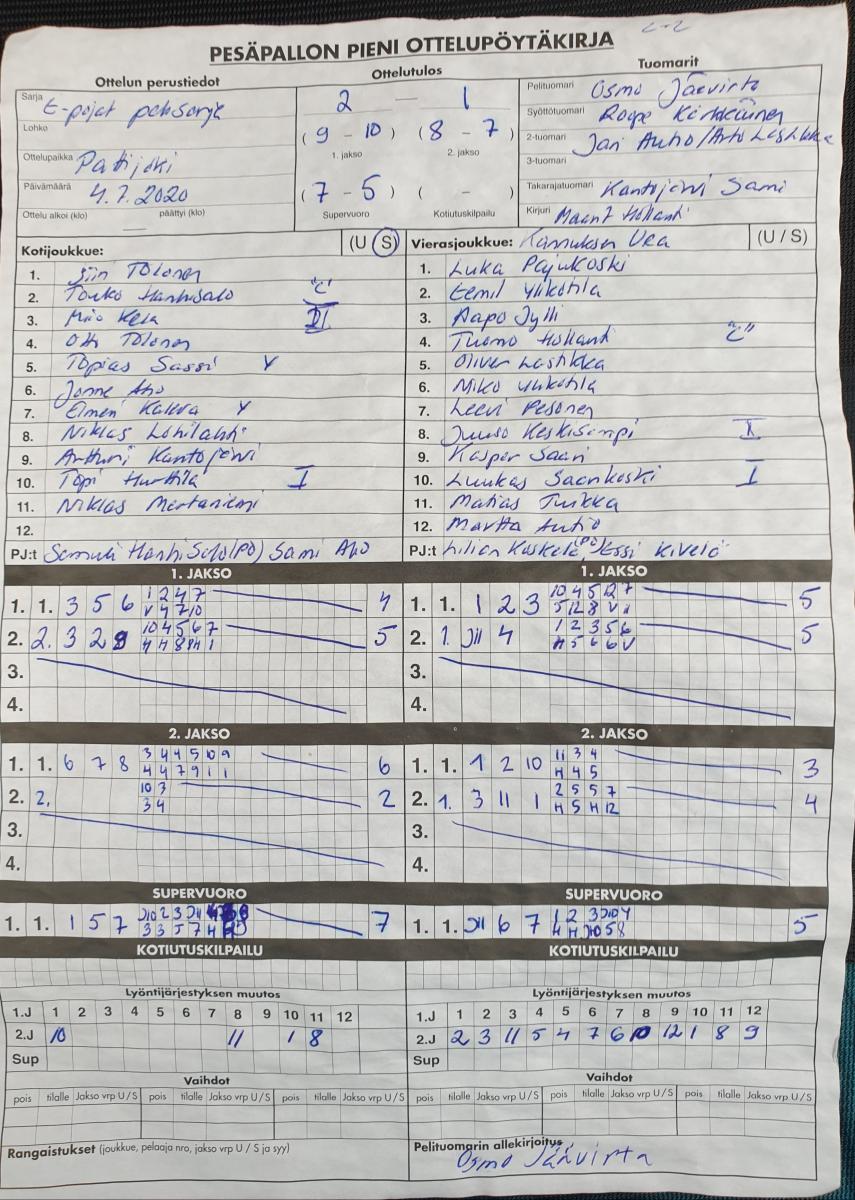 PESÄPALLON PIENI OTTELUPÖYTÄKIRJA
Ottelun perustiedot Ottelutulos Tuomarit
Sarja E-pojat
Lohko
Ottelupaikka Patijoki
Päivämäärä 4.7.2020
Ottelu alkoi (klo) päättyi (klo)
2 — 1
(9 - 10) (8 - 7)
1. jakso 2. jakso
(7 - 5) ( - )
Supervuoro Kotiutuskilpailu
Pelituomari Osmo Järvirta
Syöttötuomari Roope Kerkkäinen
2-tuomari Jari Autio/Arto
3-tuomari
Takarajatuomari Kantojärvi Sami
Kirjuri Hollanti
Kotijoukkue: (U S)
1. Tolonen
2. Touko Hanhisalo "C"
3. Kela II
4. Otti Tolonen
5. Topias Sassi Y
6. Jonne Aho
7. Eimeri Kaleva Y
8. Niklas Löhilahti
9. Artturi Kantojärvi
10. Topi Hurttila I
11. Niklas Mertaniemi
12.
PJ:t Samuli Hanhisalo (PO) Sami Aho
Vierasjoukkue: Kannuksen Ura (U / S)
1. Luka Pajukoski
2. Eemil Ylikotila
3. Aapo Jylli
4. Tuomo Hollanti "C"
5. Oliver Lastikka
6. Niko Ylikotila
7. Leevi Pesonen
8. Juuso Keskisimpi II
9. Kasper Saari
10. Luukas Saarikoski I
11. Matias Tuikka
12. Martta Autio
PJ:t Lilian Koskela (PO), Essi Kivelä
1. JAKSO
1. 1. 3 5 6 4
2. 2. 3 2 9 5
3.
4.
1. JAKSO
1. 1. 1 2 3 5
2. 1. J11 4 5
3.
4.
2. JAKSO
1. 1. 6 7 8 3 4 4 5 10 9 6
4 4 7 9 1 1
2. 2. 10 3 2
3 4
3.
4.
2. JAKSO
1. 1. 1 2 10 11 3 4 3
H 4 5
2. 1. 3 11 1 2 5 5 7 4
H 5 H 12
3.
4.
SUPERVUORO
1. 1. 1 5 7 7
SUPERVUORO
1. 1. J11 6 7 5
KOTIUTUSKILPAILU KOTIUTUSKILPAILU
Lyöntijärjestyksen muutos
1.J 1 2 3 4 5 6 7 8 9 10 11 12
2.J 10 11 1 8
Sup
Lyöntijärjestyksen muutos
1.J 1 2 3 4 5 6 7 8 9 10 11 12
2.J 2 3 11 5 4 7 6 10 12 1 8 9
Sup
Vaihdot
pois tilalle Jakso vrp U / S pois tilalle Jakso vrp U / S pois tilalle Jakso vrp U / S
Vaihdot
pois tilalle Jakso vrp U / S pois tilalle Jakso vrp U / S pois tilalle Jakso vrp U / S
Rangaistukset (joukkue, pelaaja nro, jakso vrp U / S ja syy)
Pelituomarin allekirjoitus
Osmo Järvirta